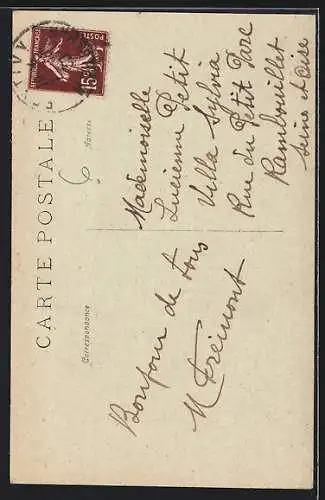 CARTE POSTALE
Correspondance
Adresse
REPUBLIQUE FRANÇAISE
POSTES
15c
Bonjour de tous
M Frémont
Mademoiselle
Lucienne Petit
Villa Sylvia
Rue du Petit Parc
Rambouillet
Seine et Oise